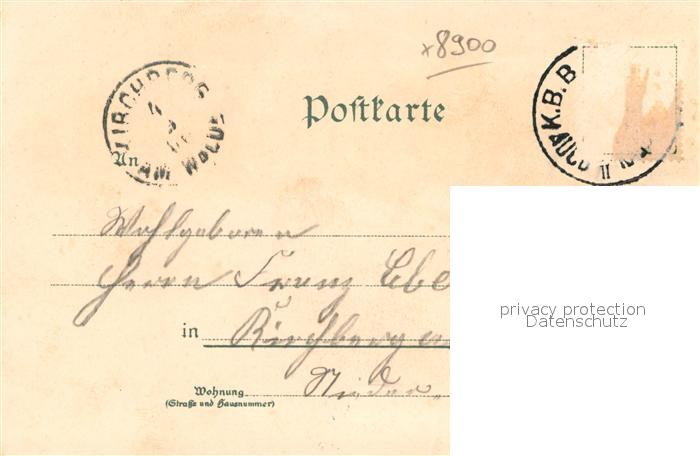 x8900
KIRCHBERG
4
AM WALDE
Postkarte
K.B.B
II
An
Wohlgeboren
Herrn Franz Ebe
in Kirchberg a
Nieder
Wohnung
(Straße und Hausnummer)
privacy protection
Datenschutz